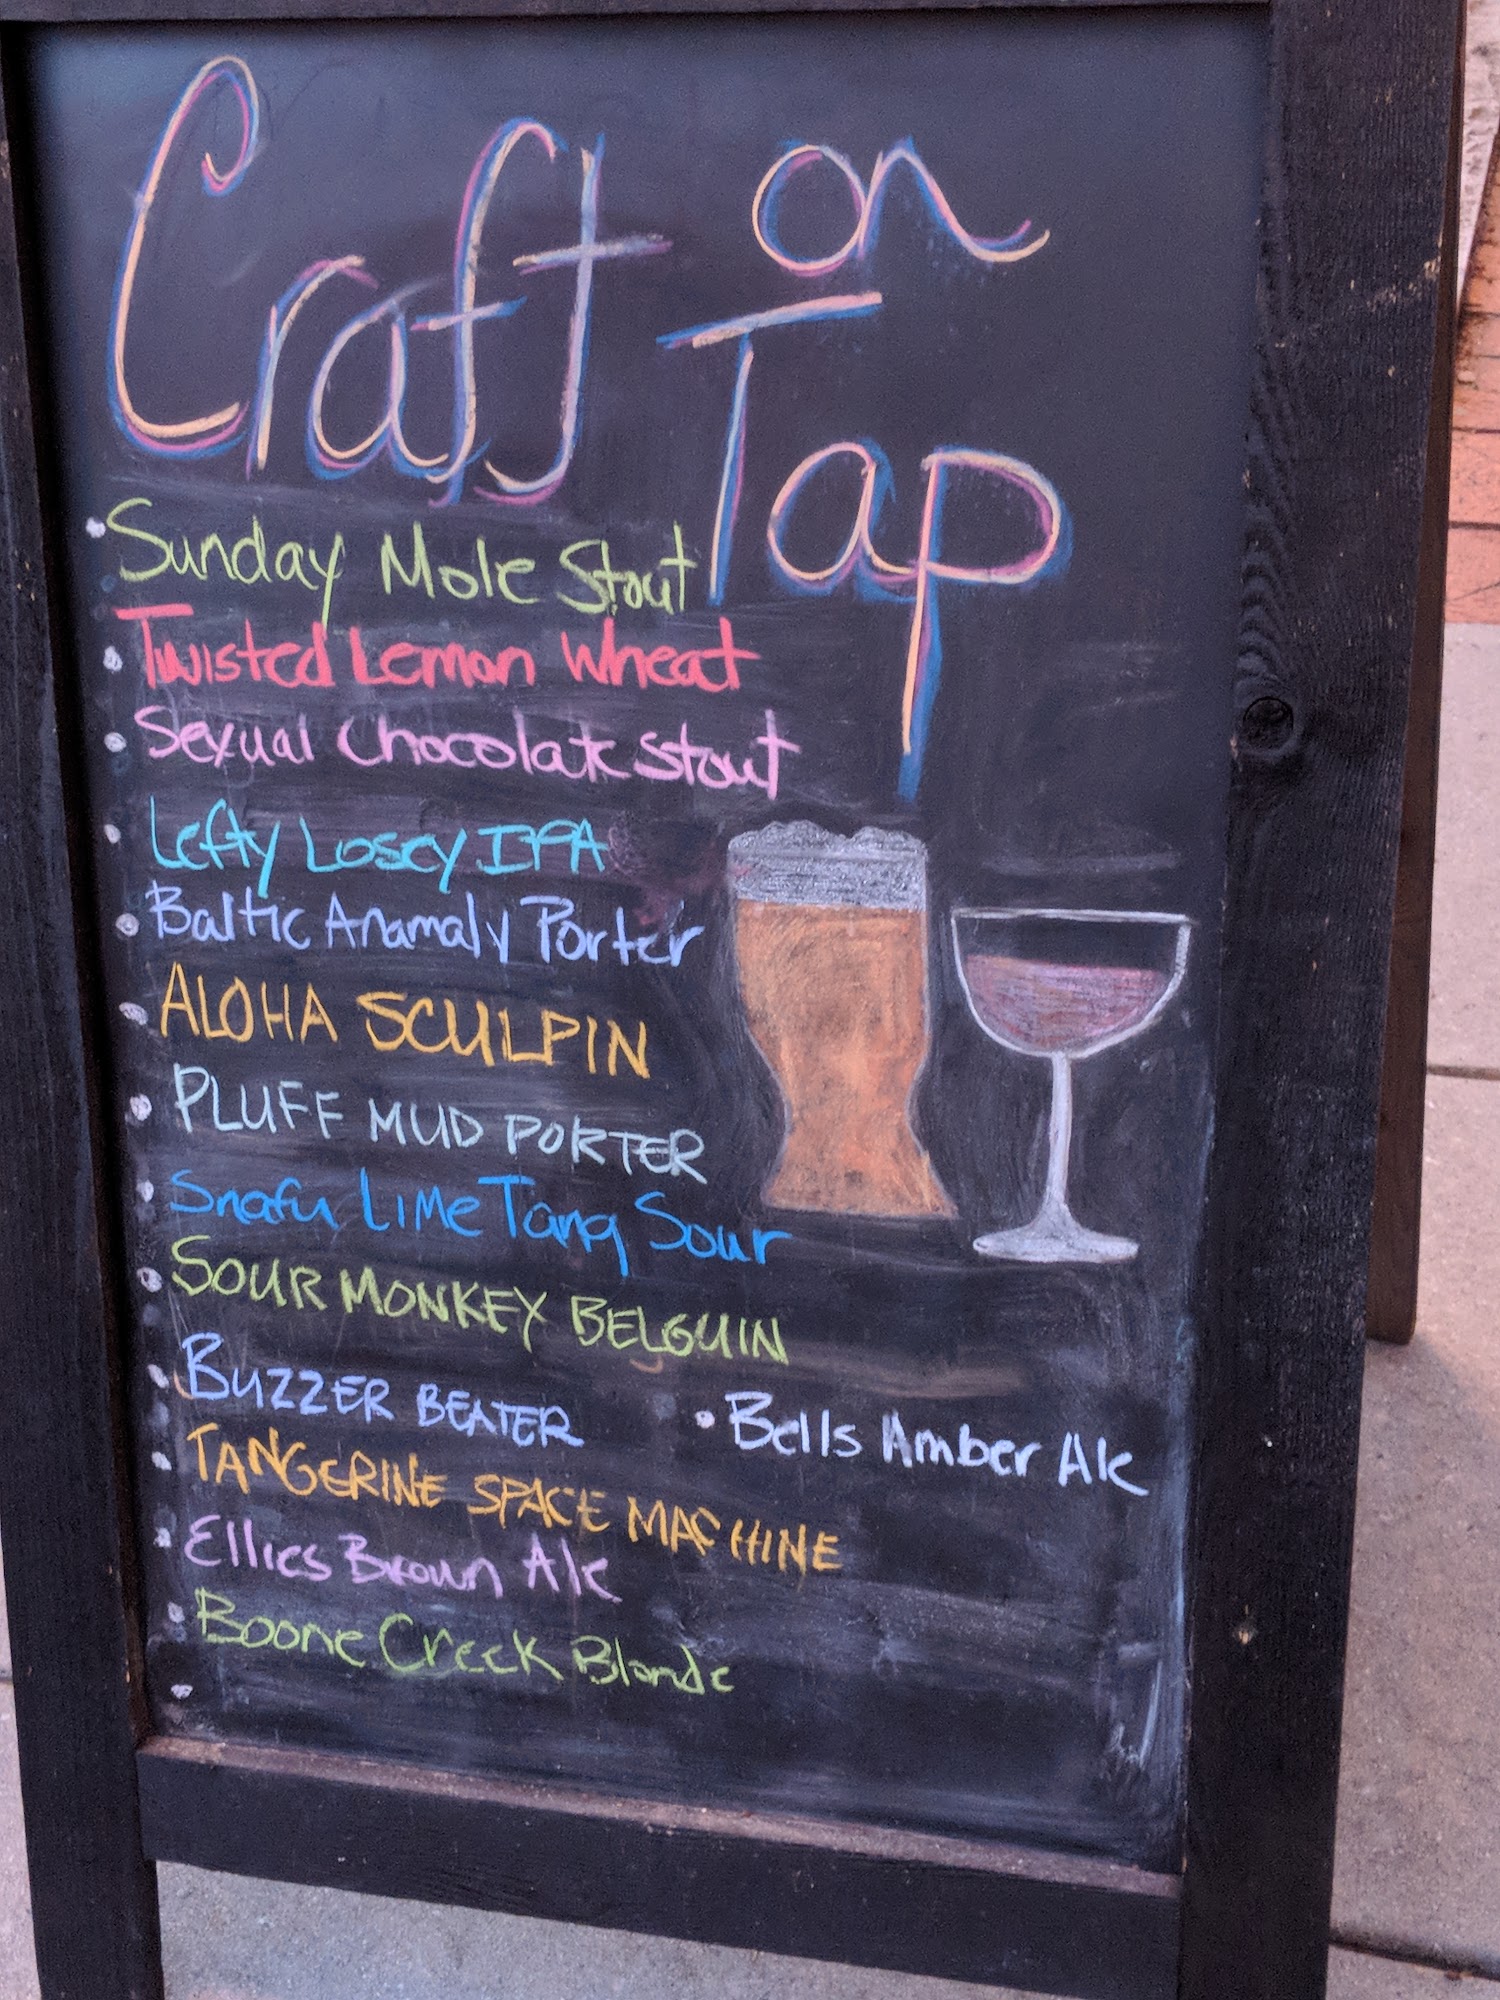 Craft on
Tap
Sunday Mole Stout
Twisted Lemon Wheat
Sexual Chocolate Stout
Lefty Loscy IPA
Baltic Anamaly Porter
ALOHA SCULPIN
PLUFF MUD PORTER
Snafu LiMe Tang Sour
SOUR MONKEY BELGUIN
BUZZER BEATER
Bells Amber Ale
TANGERINE SPACE MACHINE
Ellies Brown Ale
Boone Creek Blonde